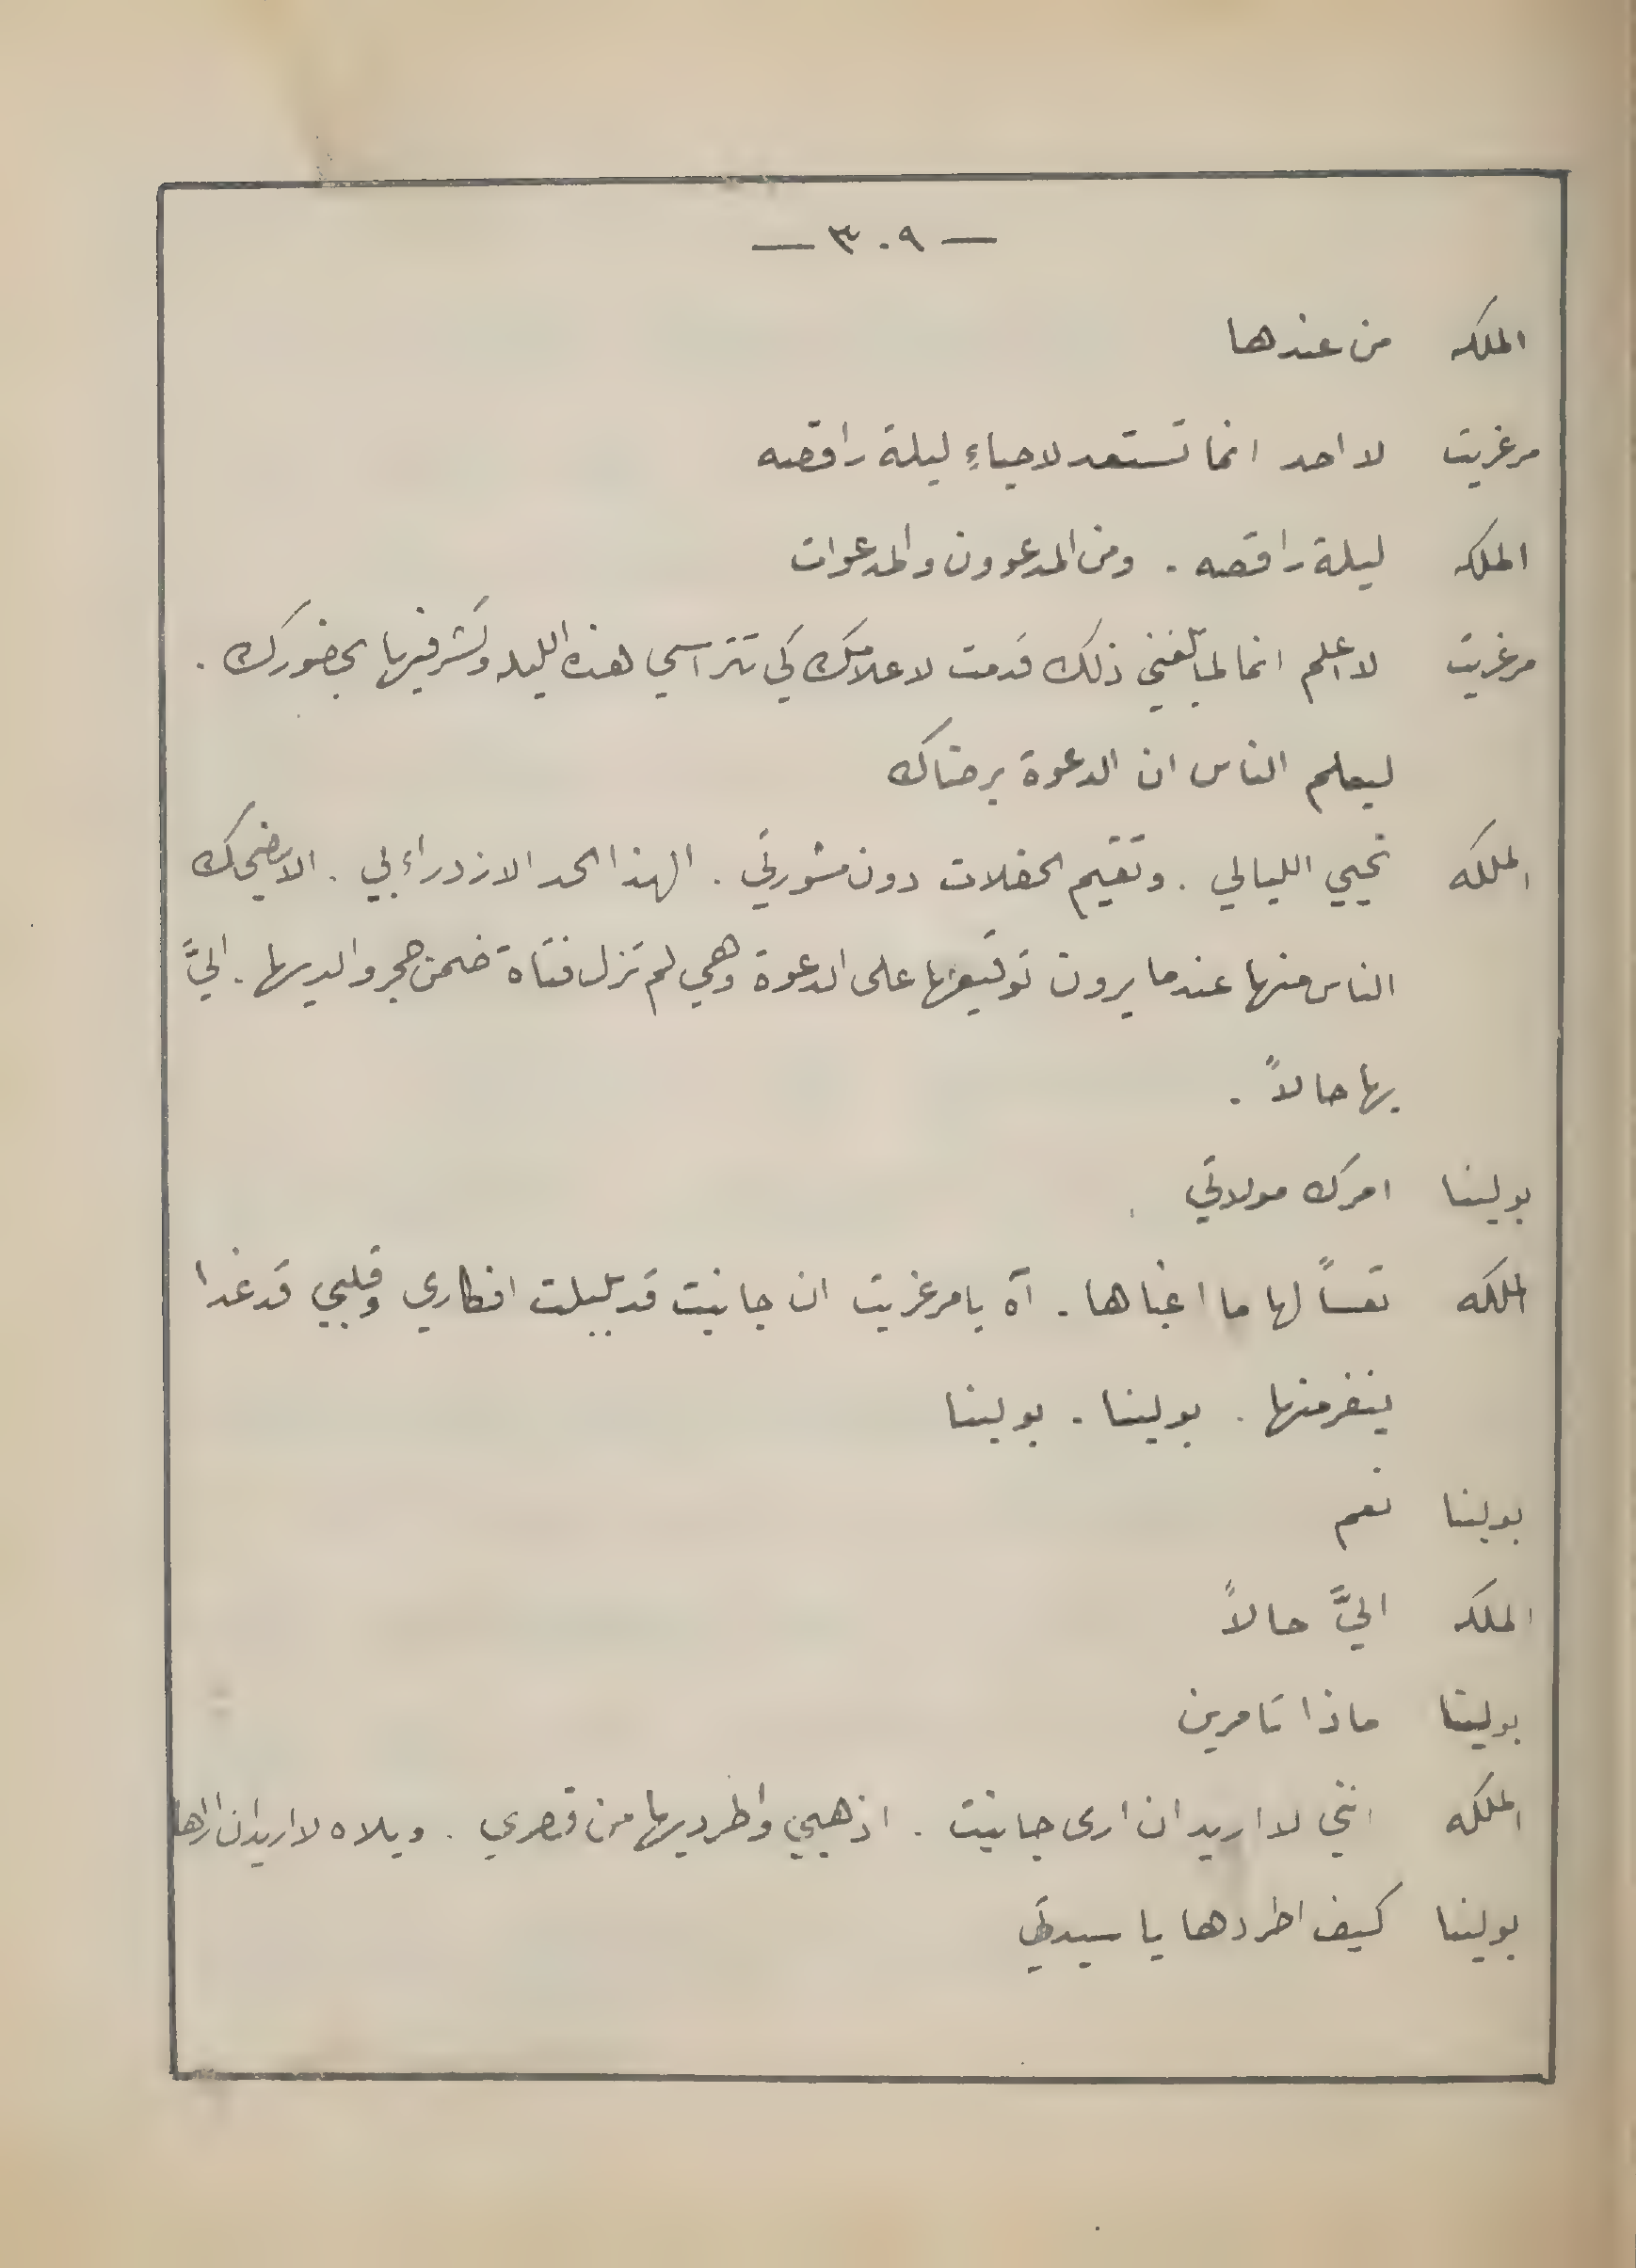 — ٣٠٩ —
الملكه من عندها
مرغريت لا احد انما تستعد لاحياءِ ليلة راقصه
الملكه ليلة راقصه . ومن المدعوون والمدعوات
مرغريت لا اعلم انما لما بلغني ذلك قدمت لاعلامك كي تترآسي هذه الليله وتشرفيها بحضورك .
ليعلم الناس ان الدعوة برضاك
الملكه تحيي الليالي . وتقيم الحفلات دون مشورتي . الهذا الحد الازدراء بي . الا يضحك
الناس منها عندما يرون توقيعها على الدعوة وهي لم تزل فتاة ضمن حجر والديها . اليَّ
بها حالاً .
بولينا امرك مولاتي
الملكه تعساً لها ما اغباها . آه يا مرغريت ان جانيت قد بلبلت افكاري وقلبي قد غدا
ينفر منها . بولينا . بولينا
بولينا نعم
الملكه اليَّ حالاً
بولينا ماذا تامرين
الملكه انني لا اريد ان ارى جانيت . اذهبي واطرديها من قصري . ويلاه لا اريد ان اراها
بولينا كيف اطردها يا سيدتي